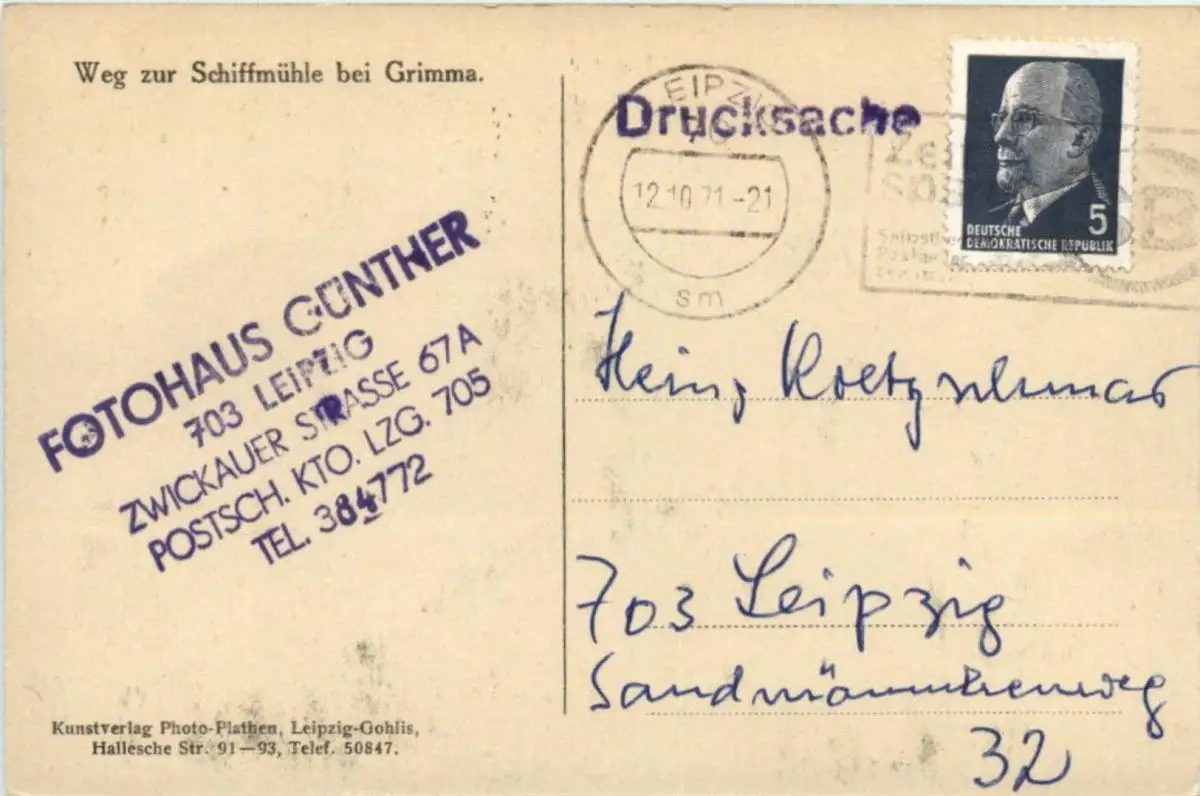 Weg zur Schiffmühle bei Grimma.
Drucksache
LEIPZIG
12.10.71-21
sm
5
DEUTSCHE
DEMOKRATISCHE REPUBLIK
FOTOHAUS GÜNTHER
703 LEIPZIG
ZWICKAUER STRASSE 67A
POSTSCH. KTO. LZG. 705
TEL. 384772
Heinz
703 Leipzig
Sandmännchenweg
32
Kunstverlag Photo-Plathen, Leipzig-Gohlis,
Hallesche Str. 91—93, Telef. 50847.